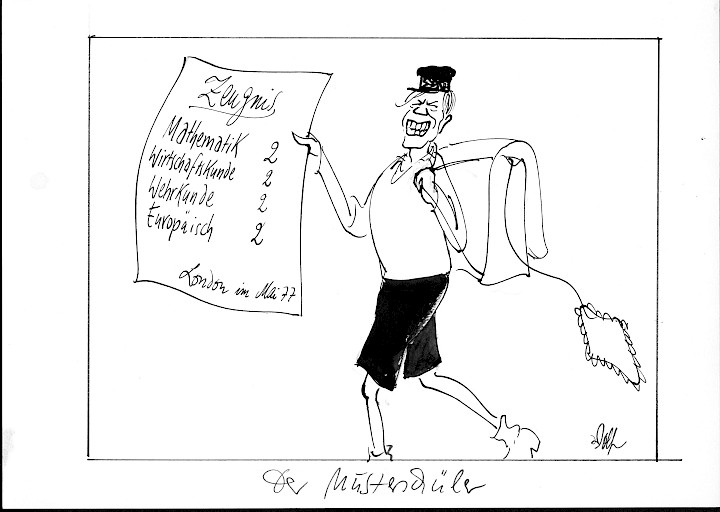 Zeugnis
Mathematik 2
Wirtschaftskunde 2
Wehrkunde 2
Europäisch 2
London im Mai 77
Der Musterschüler